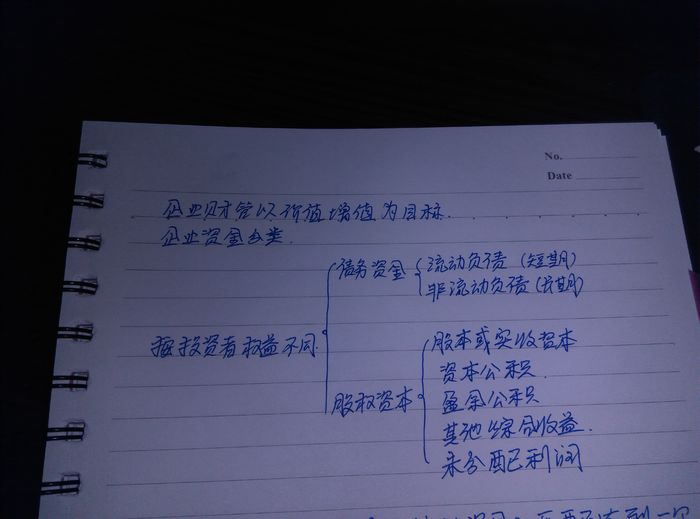 No.
Date
企业财管以价值增值为目标.
企业资金分类.
债务资金 流动负债 (短期)
非流动负债 (长期)
按投资者权益不同
股本或实收资本
资本公积.
股权资本 盈余公积
其他综合收益.
未分配利润